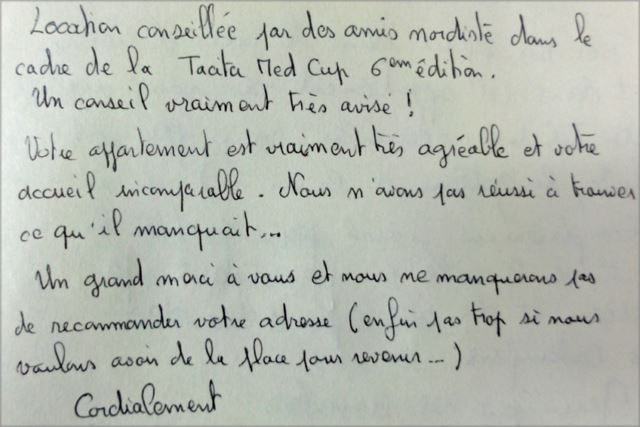 Location conseillée par des amis nordiste dans le
cadre de la Tacita Med Cup 6em édition.
Un conseil vraiment très avisé !
Votre appartement est vraiment très agréable et votre
accueil incomparable. Nous n'avons pas réussi à trouver
ce qu'il manquait...
Un grand merci à vous et nous ne manquerons pas
de recommander votre adresse (enfin pas trop si nous
voulons avoir de la place pour revenir...)
Cordialement